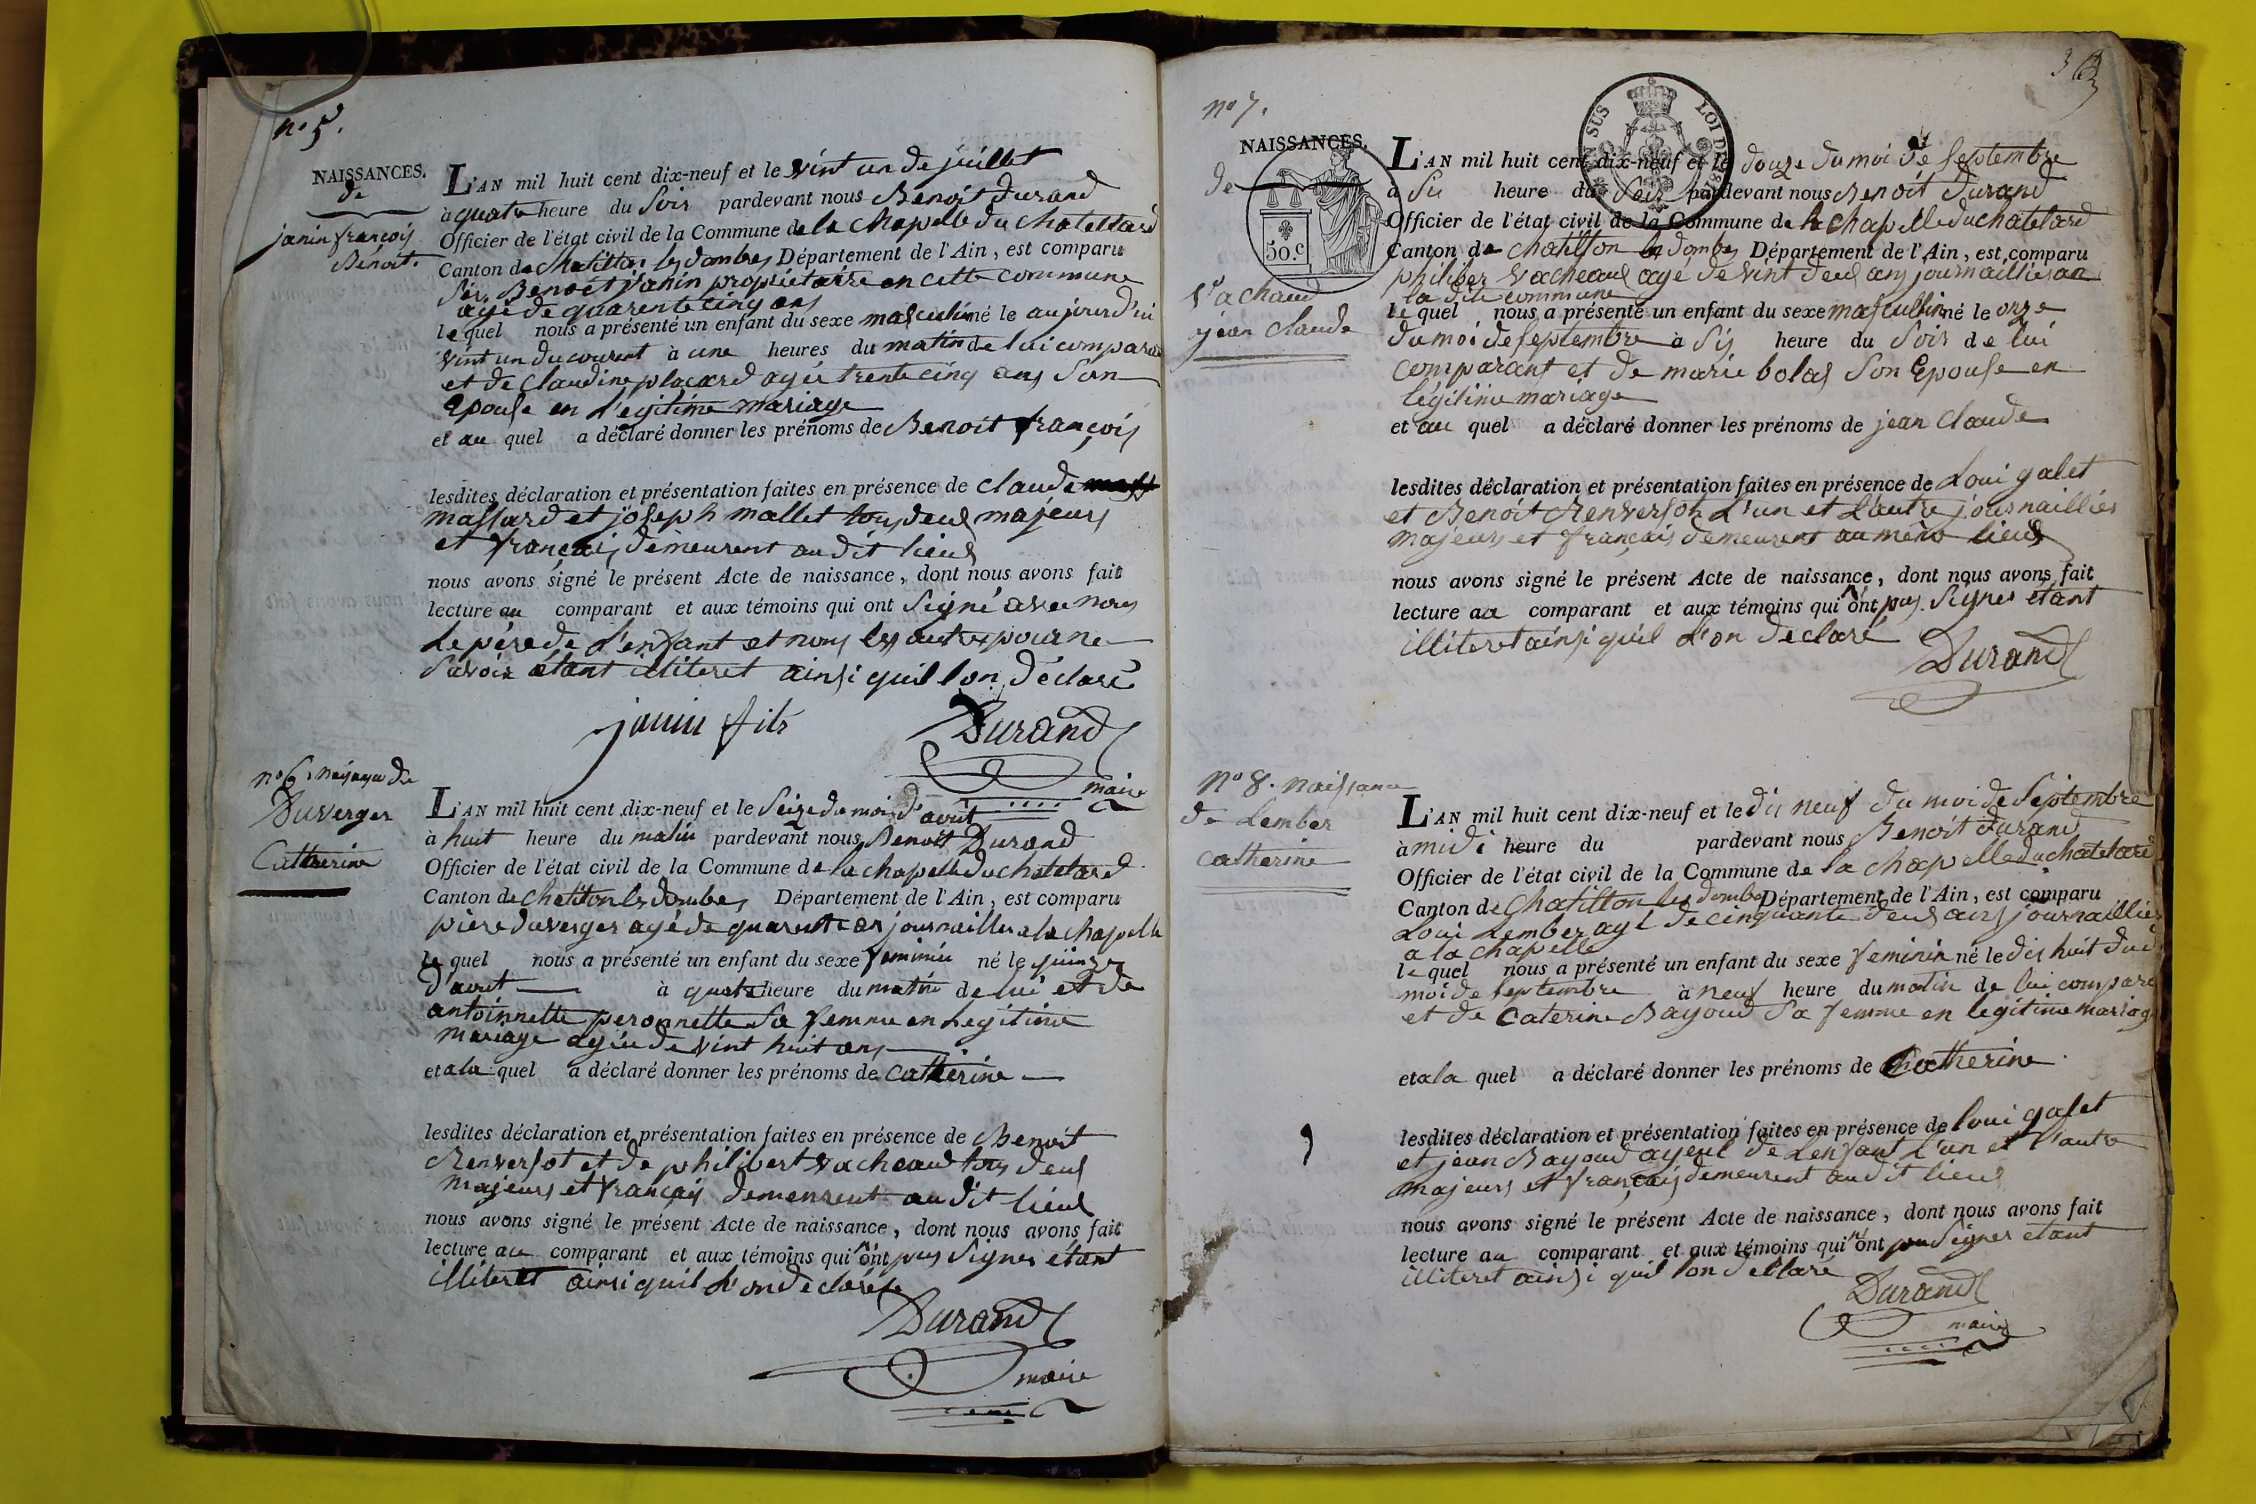 no 5.
NAISSANCES.
de
janin françois
Benoit.
L'AN mil huit cent dix-neuf et le vint un de juillet
à quatre heure du soir pardevant nous Benoit Durand
Officier de l'état civil de la Commune de la chapelle du chatelard
Canton de chatillon les dombes Département de l'Ain, est comparu
Sir. Benoit janin propriétaire en cette commune
agé de quarente cinq ans
le quel nous a présenté un enfant du sexe masculin né le aujourd'ui
vint un du courent à une heures du matin de lui comparant
et de Claudine placard agée trente cinq ans Son
Epouse en l'egitime mariage
et au quel a déclaré donner les prénoms de Benoit françois
lesdites déclaration et présentation faites en présence de claude
massard et joseph mallet tous deux majeurs
et français demeurent au dit lieux
nous avons signé le présent Acte de naissance, dont nous avons fait
lecture au comparant et aux témoins qui ont Signé avec nous
Le pére de L'enfant et nons les autres pour ne
Savoir étant illiteret ainsi quil lon déclaré
janin fils Durand
maire
no 6. naisance de
Duverger
Catherine
L'AN mil huit cent dix-neuf et le Seize du mois d'avût
à huit heure du matin pardevant nous Benoit Durand
Officier de l'état civil de la Commune de la chapelle du chatelard
Canton de chatillon les dombes Département de l'Ain, est comparu
pière duverger agé de quarente ans journaillier a la chapelle
le quel nous a présenté un enfant du sexe feminin né le quinze
d'avut à quatre heure du matin de lui et de
antoinnette peronnette Sa femme en Legitime
mariage agée de vint huit ans
et a la quel a déclaré donner les prénoms de Catherine
lesdites déclaration et présentation faites en présence de Benoit
Renversot et de philibert vacheaud tous deux
majeurs et français demeurent au dit lieux
nous avons signé le présent Acte de naissance, dont nous avons fait
lecture au comparant et aux témoins qui n'ont pas Signer étant
illiteret ainsi quil L'on declaré
Durand
maire
3
no 7.
NAISSANCES.
de
Vachaud
jean claude
50.c
EN SUS LOI DE 18
L'AN mil huit cent dix-neuf et le douze du moi de Septembre
à Sis heure du Soir pardevant nous Benoit Durand
Officier de l'état civil de la Commune de la chapelle du chatelard
Canton de chatillon les dombes Département de l'Ain, est comparu
philiber vacheaud agé de vint deux ans journaillier en
la dite commune
le quel nous a présenté un enfant du sexe masculin né le onze
du moi de Septembre à Sis heure du Soir de lui
comparant et de marie bolas Son Epouse en
légitime mariage
et au quel a déclaré donner les prénoms de jean Claude
lesdites déclaration et présentation faites en présence de Loui galet
et Benoit Renversot L'un et L'autre journaillier
majeurs et français demeurent au même lieux
nous avons signé le présent Acte de naissance, dont nous avons fait
lecture au comparant et aux témoins qui n'ont pas Signer étant
illiteret ainsi quil L'on declaré
Durand
No 8. naissance
de Lember
catherine
L'AN mil huit cent dix-neuf et le dis neuf du moi de Septembre
à midi heure du pardevant nous Benoit Durand
Officier de l'état civil de la Commune de la chapelle du chatelard
Canton de Chatillon les dombes Département de l'Ain, est comparu
Loui Lember agé de cinquante deux ans journaillier
a la chapelle
le quel nous a présenté un enfant du sexe feminin né le dis huit dud
moi de Septembre à neuf heure du matin de lui compare
et de Caterine Bayoud Sa femme en legitime mariage
et a la quel a déclaré donner les prénoms de Catherine
lesdites déclaration et présentation faites en présence de loui galet
et jean Bayoud ayeul de Lenfant L'un et l'autre
majeurs et français demeurent au dit lieux
nous avons signé le présent Acte de naissance, dont nous avons fait
lecture au comparant et aux témoins qui n'ont pu Signer étant
illiteret ainsi quil lon declare
Durand
maire